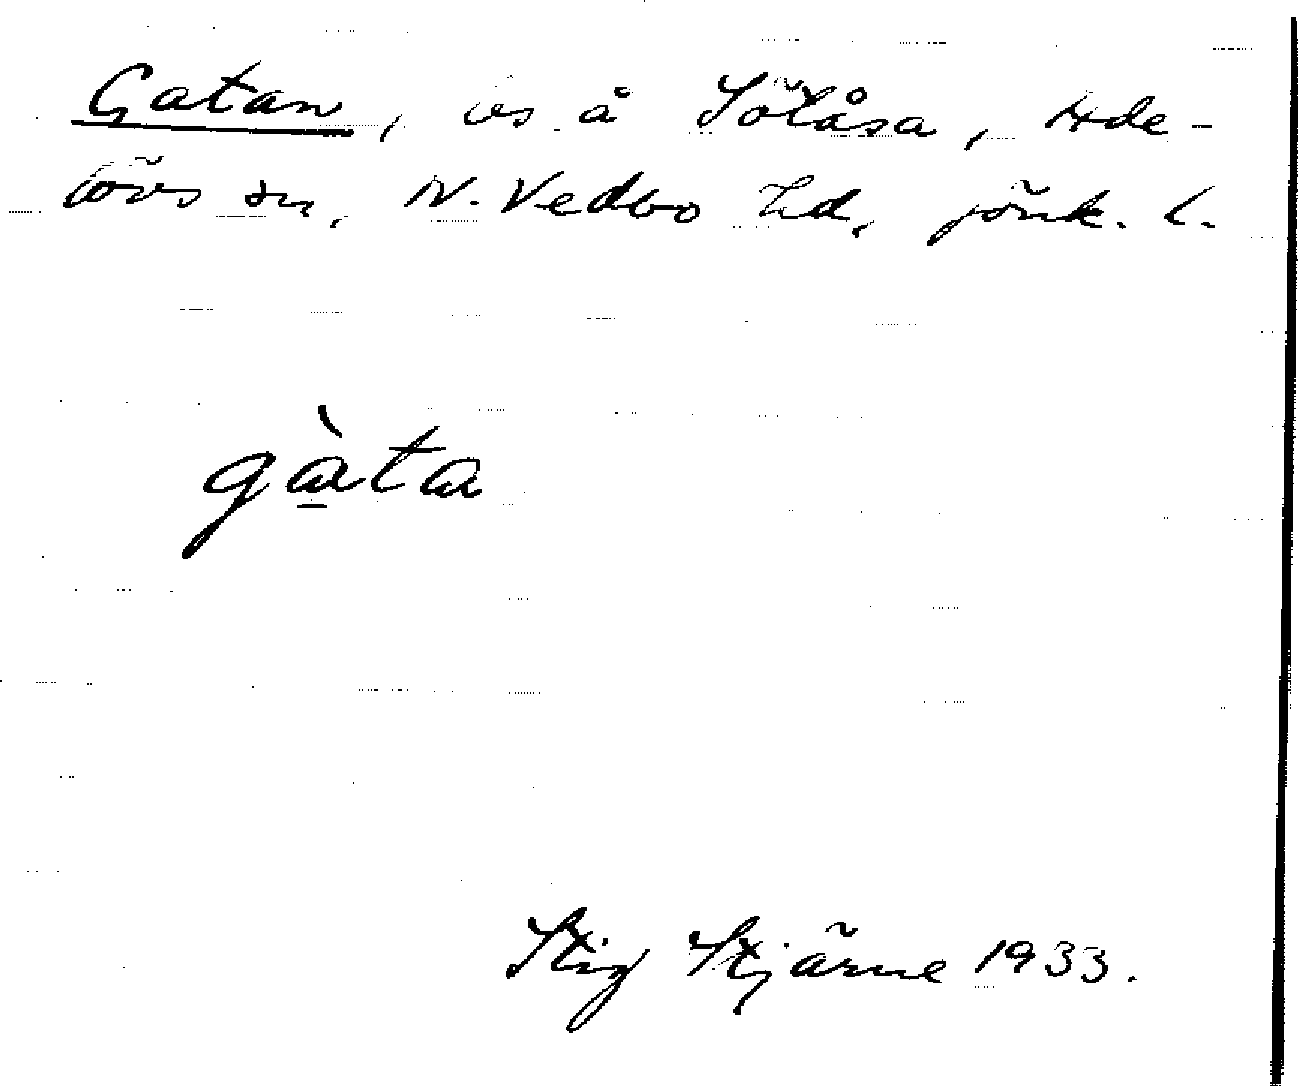 Gatan, å Sötåsa, Ade-
lövs sn, N. Vedbo hd, Jönk. l.
gàta
Stig Stjärne 1933.